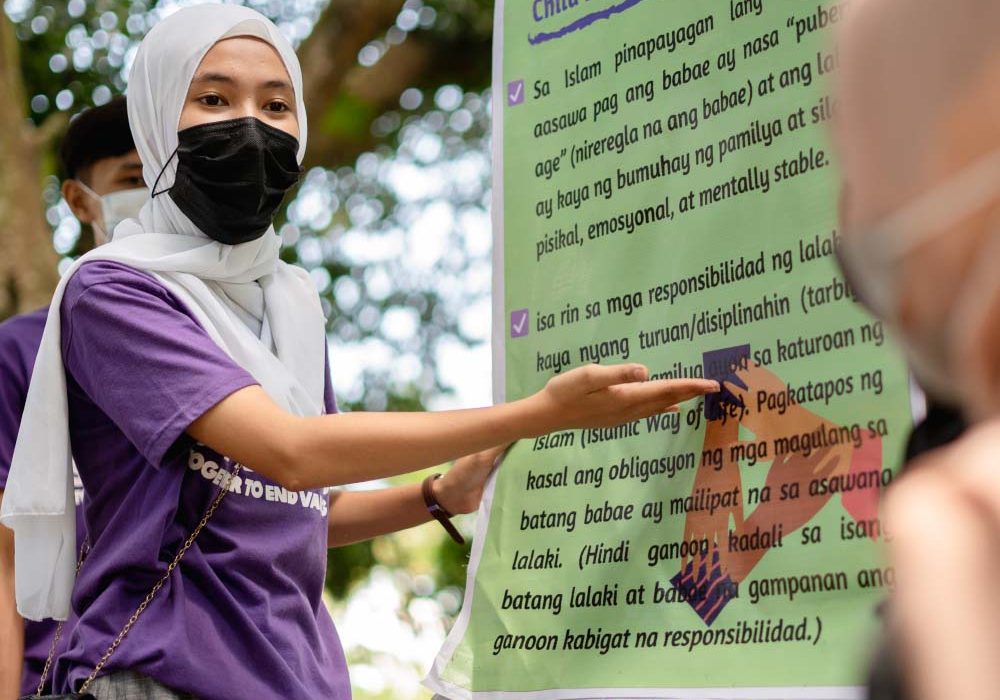 Child
Sa Islam pinapayagan lang
aasawa pag ang babae ay nasa "puber
age" (nireregla na ang babae) at ang lal
ay kaya ng bumuhay ng pamilya at sil
pisikal, emosyonal, at mentally stable.
isa rin sa mga responsibilidad ng lalak
kaya nyang turuan/disiplinahin (tarbi
sa katuroan ng
Islam (Islamic Way of Life). Pagkatapos ng
kasal ang obligasyon ng mga magulang sa
batang babae ay mailipat na sa asawang
lalaki. (Hindi ganoon kadali sa isang
batang lalaki at babae na gampanan ang
ganoon kabigat na responsibilidad.)
TOGETHER TO END VAWC